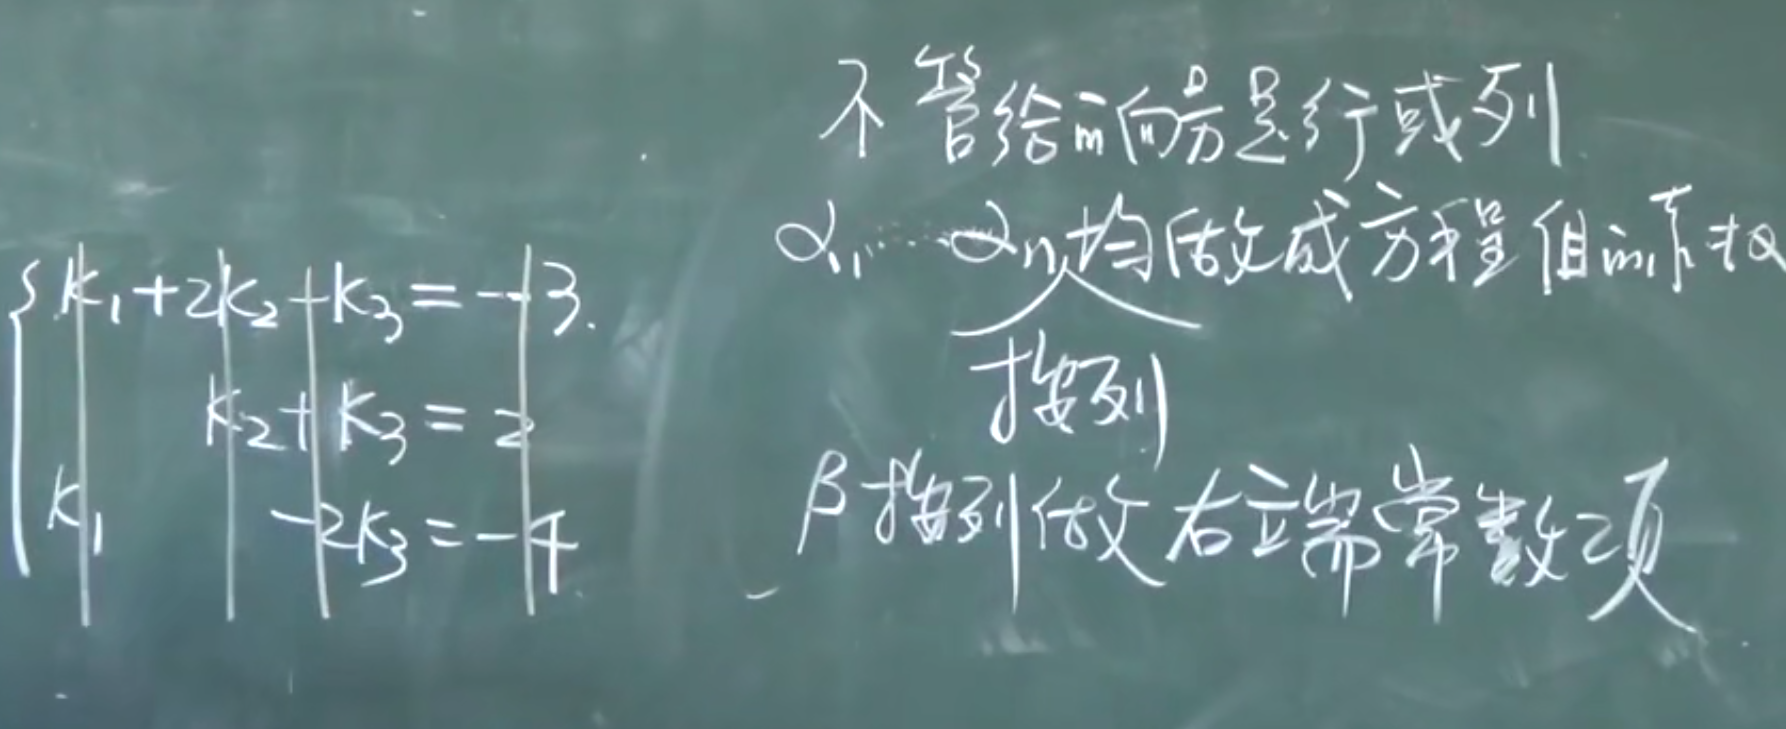 k₁+2k₂-k₃=-3
k₂+k₃=2
k₁ -2k₃=-4
不管给的向量是行或列
α₁,……αₙ均做成方程组的系数
按列
β按列做右端常数项